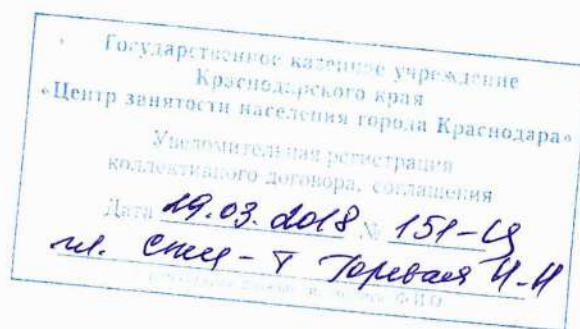 Государственное казенное учреждение
Краснодарского края
«Центр занятости населения города Краснодара»
Уведомительная регистрация
коллективного договора, соглашения
Дата 29.03.2018 № 151-
гл. спец-т Горевая Н.Н
Ф.И.О.